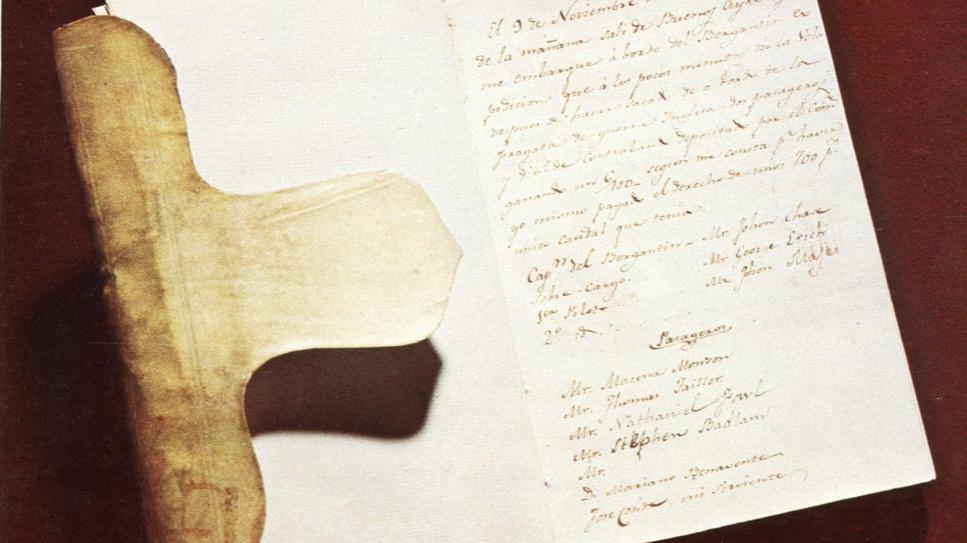 El 9 de Noviembre
de la mañana salí de Buenos Ayres y
me embarque á bordo del Bergantin ex
pedicion que á los pocos minutos dio la Vela
despues de haver sacado de a bord de la
fragata de guerra Inglesa dos pasageros
y din.º de contraband depositado por el Com
ganando un 6 p 100 segun me consta p.r haver
yo mismo pagado el derecho de unos 700 p.s
unico caudal que tenia
Cap.n del Bergantin - Mr. Johon Chase
Sobre-cargo Mr. George Erich
1er Piloto Mr. Johon
2º id
Pasageros
Mr. Macena Monson
Mr. Thomas Taillor
Mr. Nathaniel Fowl
Mr. Stephen Badlam
Mr.
D. Mariano Benavente
Jose Conde, mi sirviente